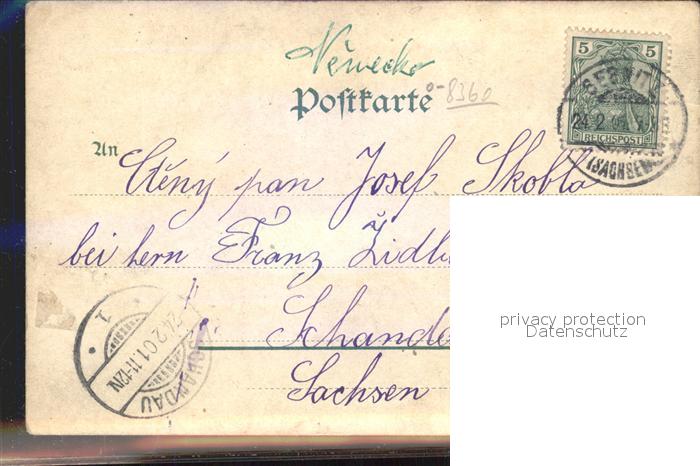 Německo
Postkarte
o-8360
5 5
REICHSPOST
SEBNITZ
24.2
(SACHSEN)
An
Ctěný pan Josef Skobla
bei hern Franz Židl
Schanda
Sachsen
SCHANDAU
24.2.01.11-12N
1
privacy protection
Datenschutz